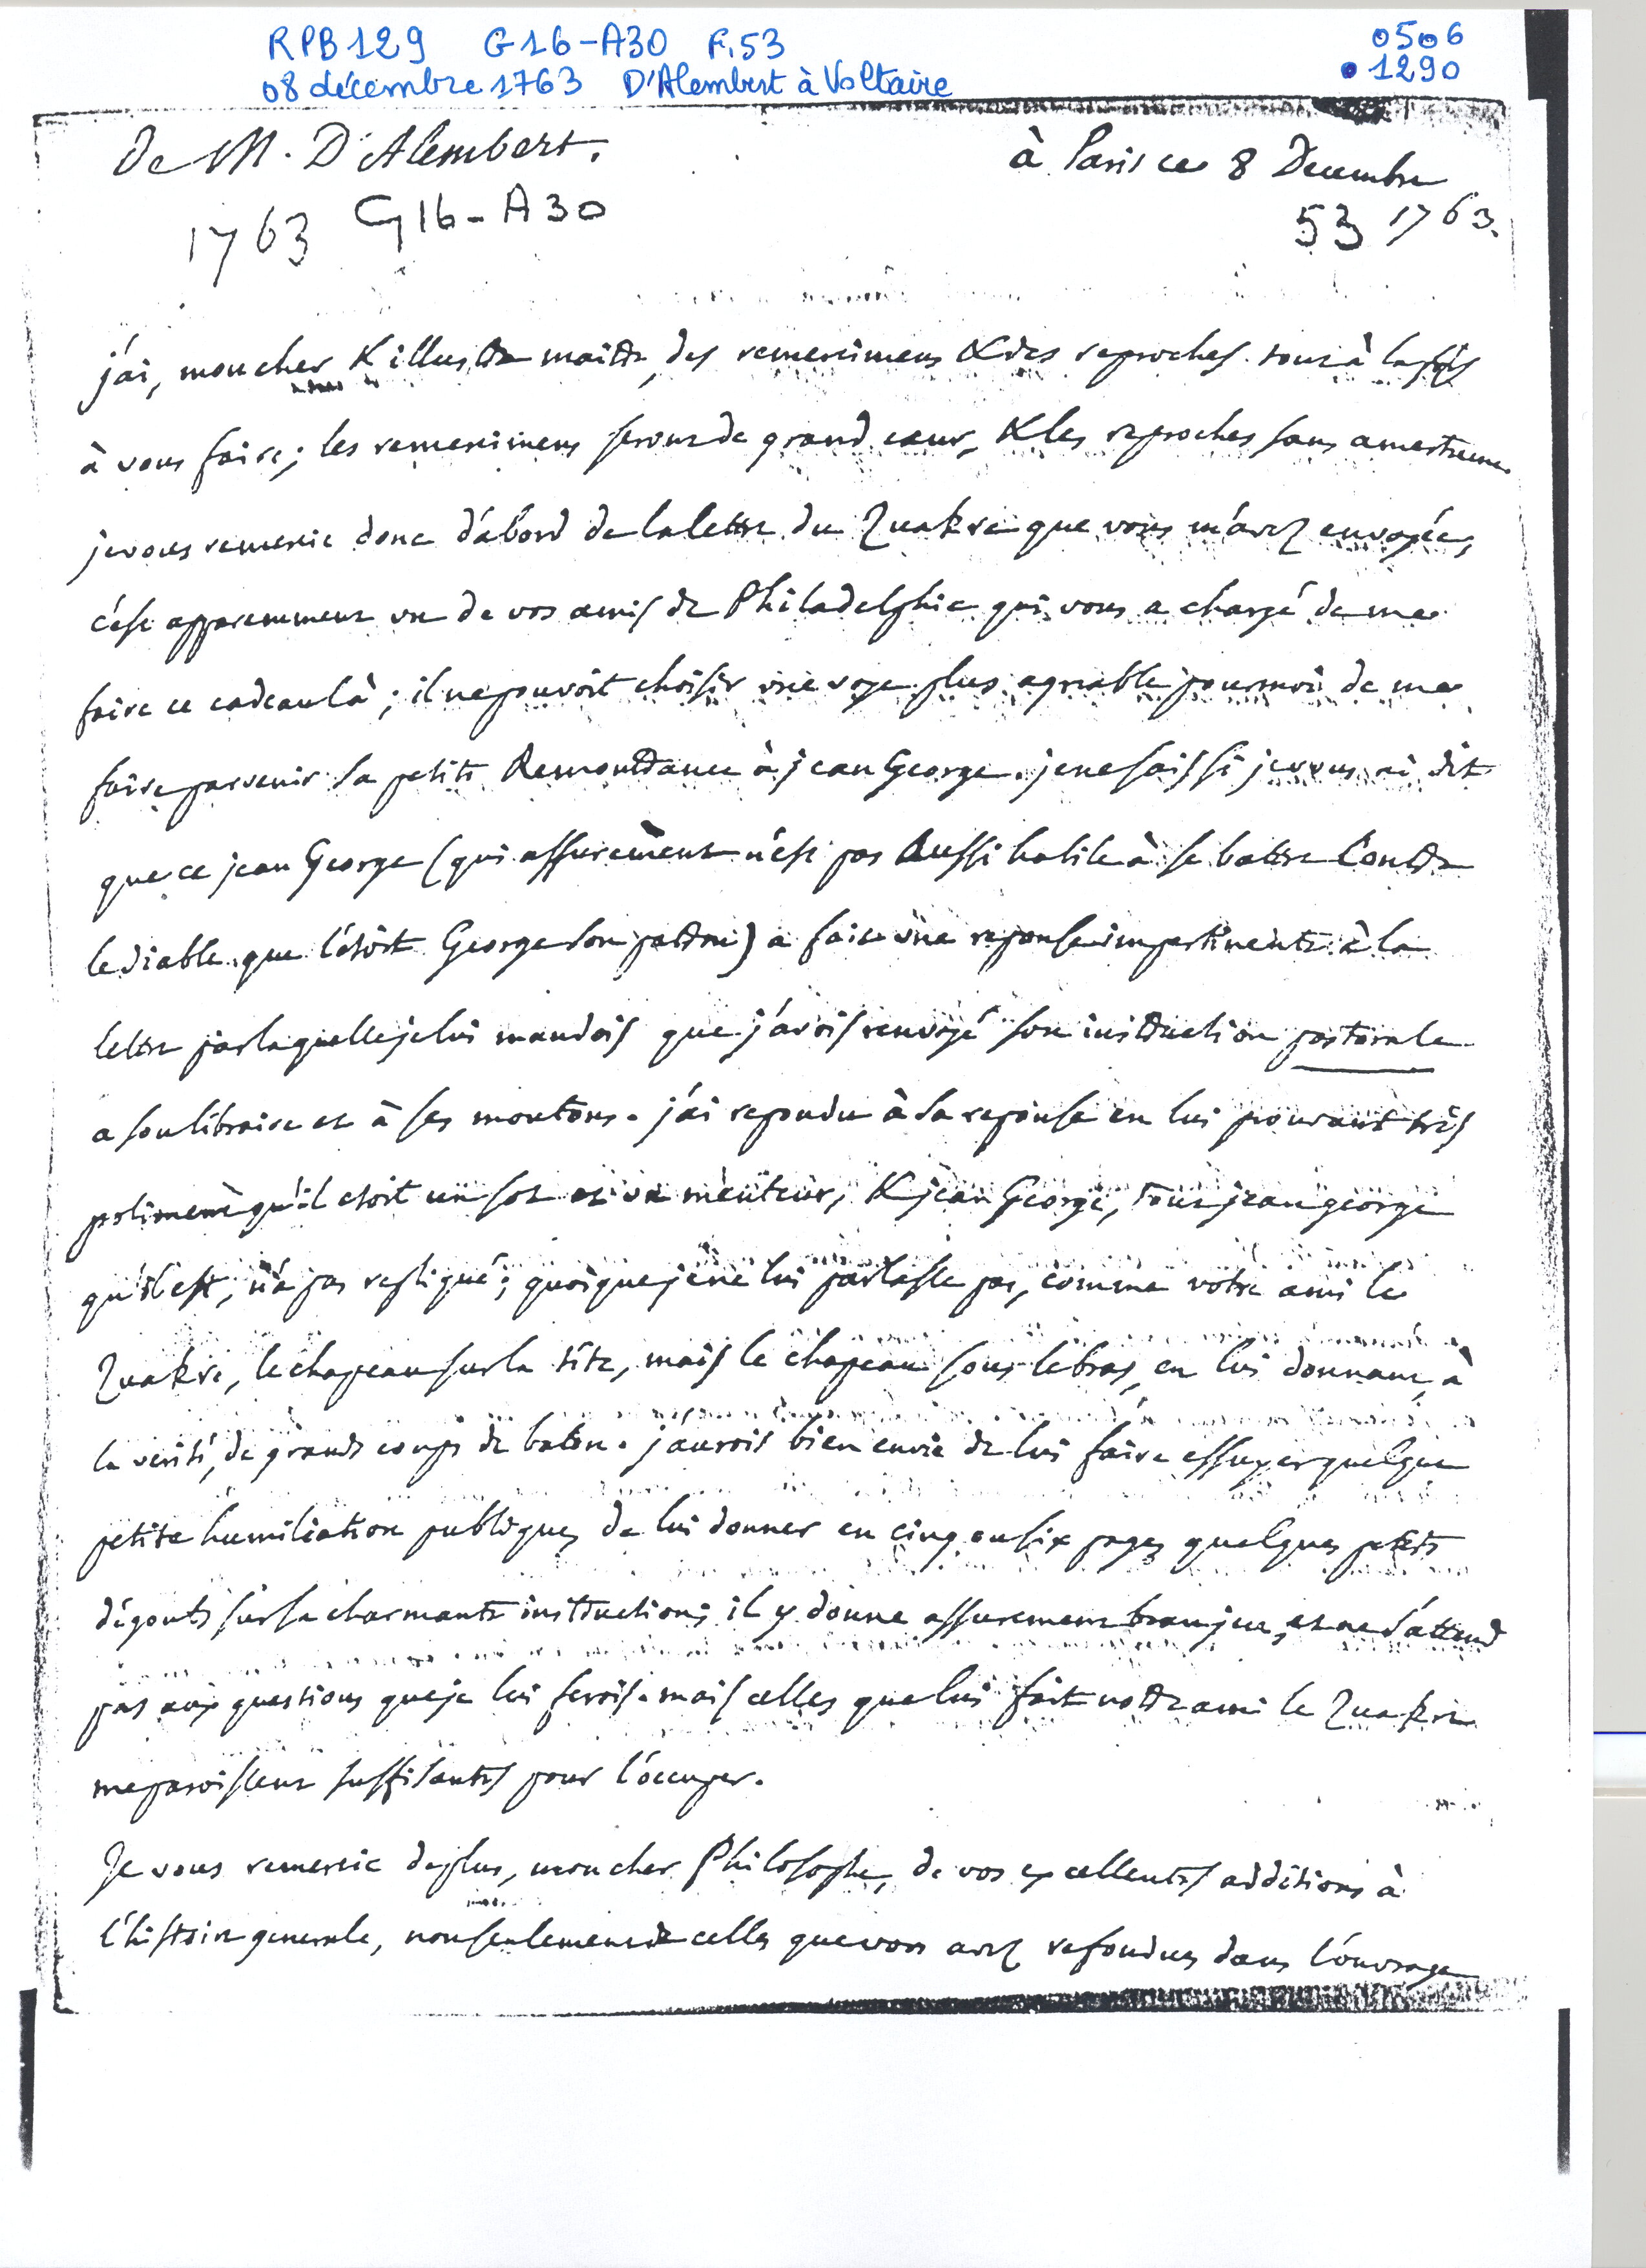 RPB129 G16-A30 F.53
0506
08 décembre 1763 D'Alembert à Voltaire
1290
De M. D'Alembert.
à Paris ce 8 Decembre
1763 G16-A30
53 1763.
j'ai, mon cher & illustre maitre, des remercimens & des reproches tout à la fois
à vous faire; les remercimens seront de grand cœur, & les reproches sans amertume.
je vous remercie donc d'abord de la lettre du Quakre que vous m'avez envoyée,
c'est apparemment un de vos amis de Philadelphie qui vous a chargé de me
faire ce cadeau là; il ne pouvoit choisir une voye plus agreable pour moi de me
faire parvenir sa petite Remontrance à jean George. je ne sais si je vous ai dit
que ce jean George (qui assurément n'est pas Aussi habile à se battre Contre
le diable que l'étoit George son patron) a fait une reponse impertinente à la
lettre par laquelle je lui mandois que j'avois renvoyé son instruction pastorale
a son libraire et à ses moutons. j'ai repondu à sa reponse en lui prouvant très
poliment qu'il etoit un sot et un menteur, & jean George, tout jean george
qu'il est, n'a pas repliqué; quoique je ne lui parlasse pas, comme votre ami le
Quakre, le chapeau sur la tête, mais le chapeau sous le bras, en lui donnant, à
la verité, de grands coups de baton. j'aurois bien envie de lui faire essuyer quelque
petite humiliation publique, de lui donner en cinq ou six pages quelques petits
dégouts sur sa charmante instruction; il y donne assurement beau jeu, et ne s'attend
pas aux questions que je lui ferois. mais celles que lui fait votre ami le Quakre
me paroissent suffisantes pour l'occuper.
Je vous remercie de plus, mon cher Philosophe, de vos excellentes additions à
l'histoire generale, non seulement de celles que vous avez refondues dans l'ouvrage